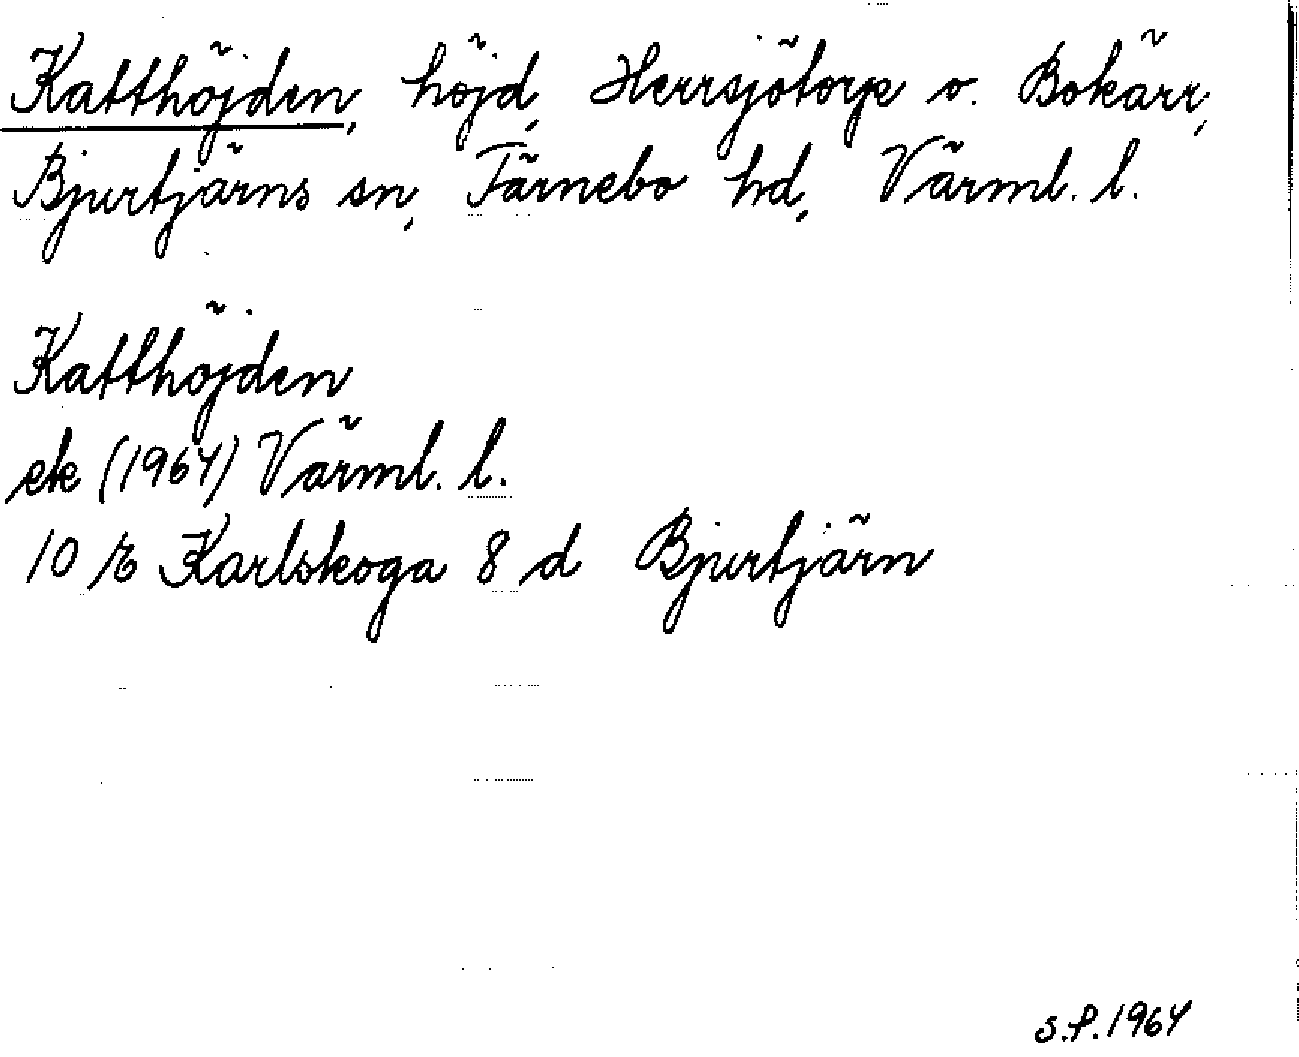 Katthöjden, höjd, Herrsjötorp o. Bokärr,
Bjurtjärns sn, Färnebo hd, Värml. l.
Katthöjden
ek (1964) Värml. l.
10 E Karlskoga 8 d Bjurtjärn
S.F. 1964